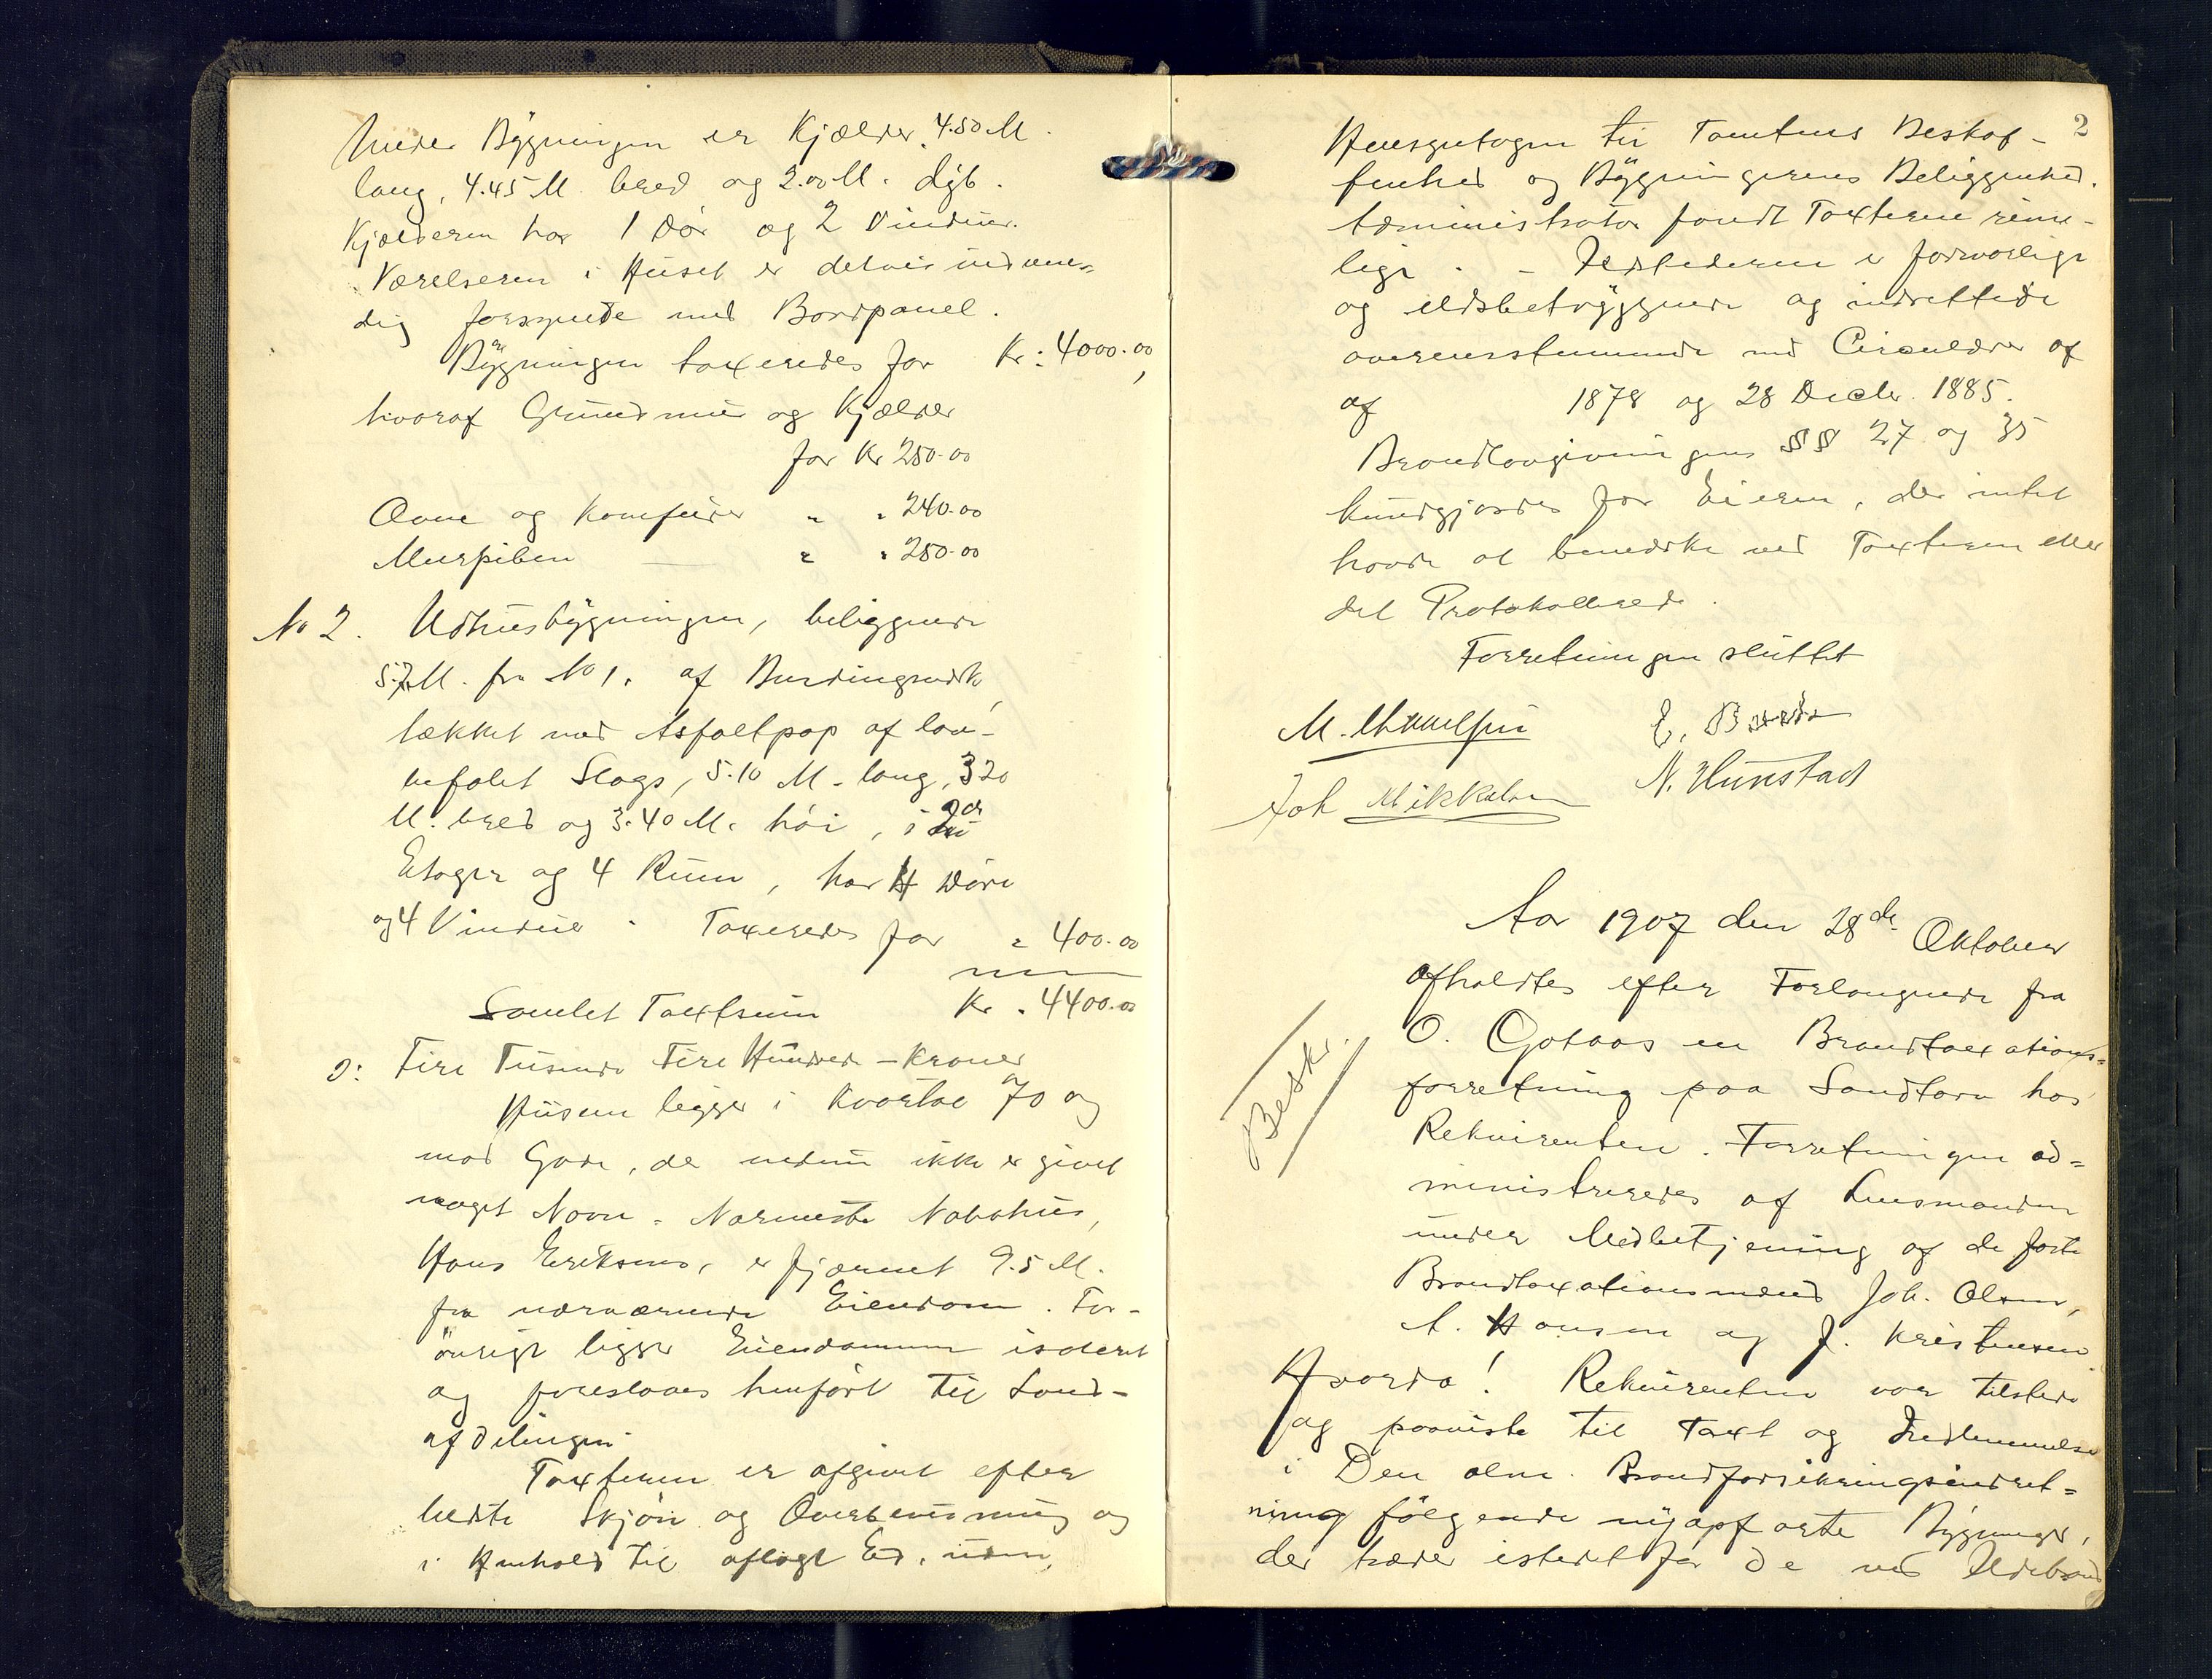 Under Bygningen er Kjælder 4.50 M.
lang, 4.45 M. bred og 2.00 M. dyb.
Kjælderen har 1 Dör og 2 Vinduer.
Værelserne i Huset er delvis indven-
dig forsynede med Bordpanel.
Bygningen taxeredes for Kr: 4000.00,
hvoraf Grundmur og Kjælder
for Kr 250.00
Ovne og Komfurer " " 240.00
Murpiben — " " 250.00
No 2. Udhusbygningen, beliggende
5.7 M. fra No 1. af Bindingsverk,
tækket med Asfaltpap af lov-
befalet Slags, 5.10 M. lang, 3.20
M. bred og 3.40 M. höi, i 2de
Etager og 4 Rum, har 4 Döre
og 4 Vinduer. Taxeredes for " 400.00
Samlet Taxtsum Kr. 4400.00
ɔ: Fire Tusinde Fire Hundrede Kroner
Husene ligger i Kvartal 70 og
mod Gade, der endnu ikke er givet
noget Navn. Nærmeste Nabohus,
Hans Eriksens, er fjærnet 9.5 M.
fra nærværende Eiendom. For-
övrigt ligger Eiendommen isoleret
og foreslaaes henfört til Land-
afdelingen.
Taxterne er afgivet efter
bedste Skjön og Overbevisning og
i Henhold til aflagt Ed, uden
2
Hensyntagen til Tomtens Beskaf-
fenhed og Bygningernes Beliggenhed.
Administrator fandt Taxterne rime-
lige. - Ildstederne er forsvarlige
og ildsbetryggende og indrettede
overensstemmende med Circulære af
af 1878 og 28 Decbr. 1885.
Brandlovgivningens §§ 27 og 35
kundgjordes for Eieren, der intet
havde at bemærke ved Taxterne eller
det Protokollerede.
Forretningen sluttet
M. E.
Joh Mikkelsen N. Hunstad
Aar 1907 den 28de Oktober
afholdtes efter Forlangende fra
O. Gotaas en Brandtaxations-
forretning paa Sandtorv hos
Rekvirenten. Forretningen ad-
ministreredes af Lensmanden
under Medbetjening af de faste
Brandtaxationsmænd Joh. Olsen,
A. Hansen og J. Kristensen.
Beskr.
Hvorda! Rekvirenten var tilstede
og paaviste til Taxt og Indlemmelse
i Den alm. Brandforsikringsindret-
ning fölgende nyopförte Bygninger,
der træder istedet for de ved Ildebrand